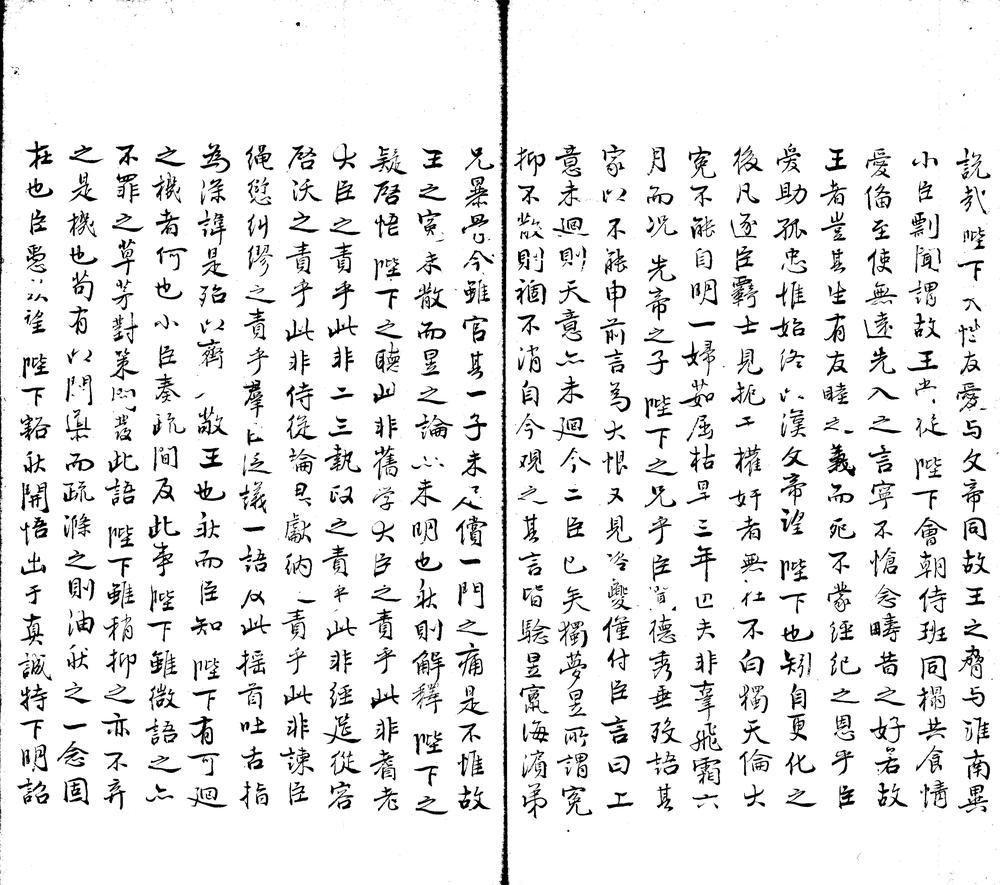 說哉陛下天性友愛与文帝同故王之脅与淮南異
小臣剽聞謂故王嘗從 陛下會朝侍班同榻共食情
愛備至使無遠先入之言寧不愴念疇昔之好若故
王者豈其生有友睦之義而死不蒙經紀之恩乎臣
愛助孤忠惟始終以漢文帝望 陛下也矧自更化之
後凡逐臣霸士見扼于權奸者無往不白獨天倫大
冤不能自明一婦茹屈枯旱三年匹夫非辜飛霜六
月而况 先帝之子 陛下之兄乎臣 德秀垂歿語其
家以不能申前言為大恨又見冷夔僅付臣言曰上
意未廻則天意亦未廻今二臣已矣獨夢昱所謂冤
抑不散則禍不消自今观之其言皆驗昱竄海濱弟
兄暴骨今雖官其一子未足償一門之痛是不惟故
王之冤未散而昱之論亦未明也然則解釋 陛下之
疑啓悟 陛下之聽此非舊学大臣之責乎此非耆老
大臣之責乎此非二三執政之責乎此非經筵從容
啓沃之責乎此非侍從論思獻納之責乎此非諫臣
繩愆糾繆之責乎羣臣泛議一語及此摇首吐舌指
為深諱是殆以齊 敵王也然而臣知 陛下有可廻
之機者何也小臣奏疏間及此事陛下雖微語之亦
不罪之草茅對策 發此語 陛下雖稍抑之亦不弃
之是機也苟有以開導而疏滌之則油然之一念固
在也臣愚以望 陛下豁然開悟出于真誠特下明詔